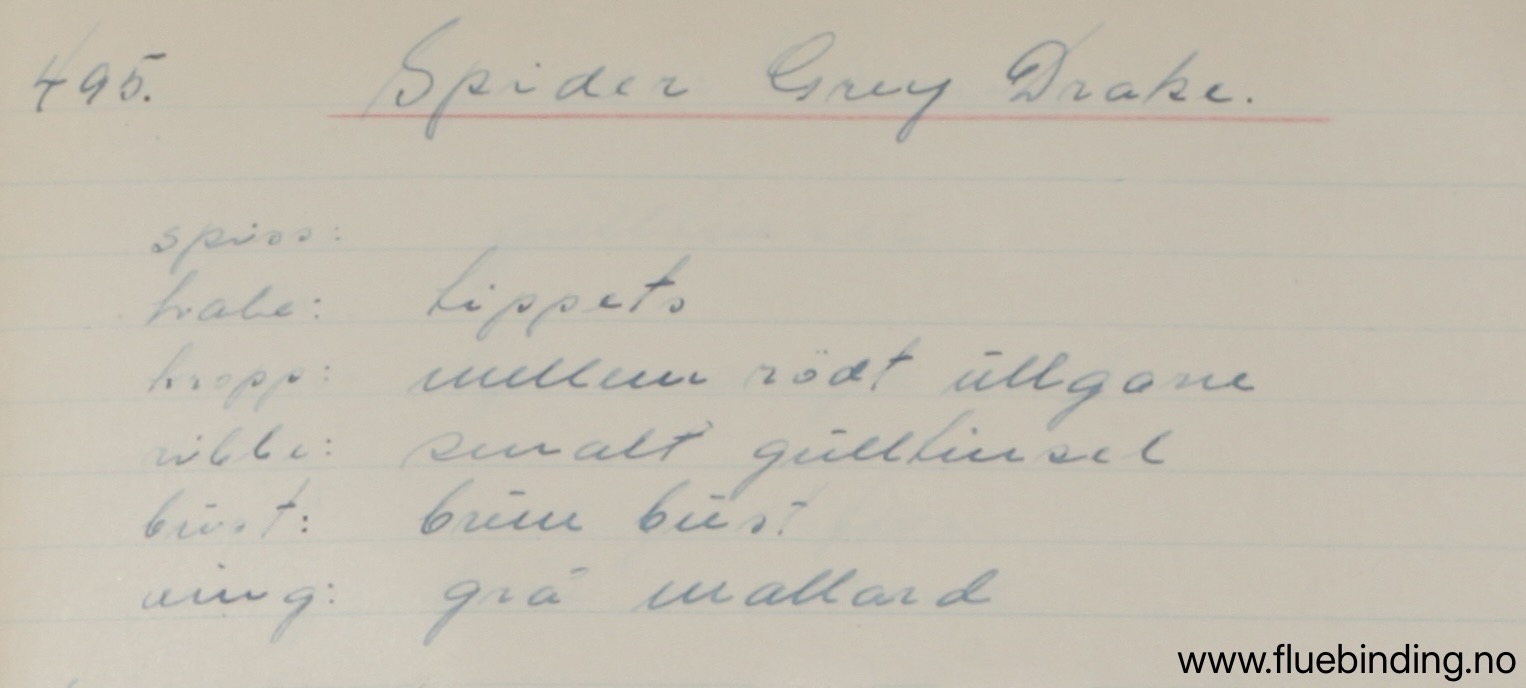 495. Spider Grey Drake.
spiss:
hale: tippets
kropp: mellem rödt ullgarn
ribbe: smalt gulltinsel
bust: brun bust
ving: grå mallard
www.fluebinding.no